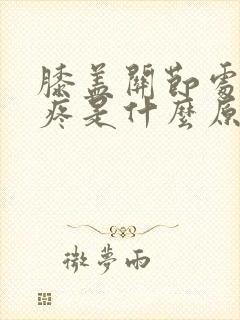 膝盖關節處
疼是什麼原
微夢雨